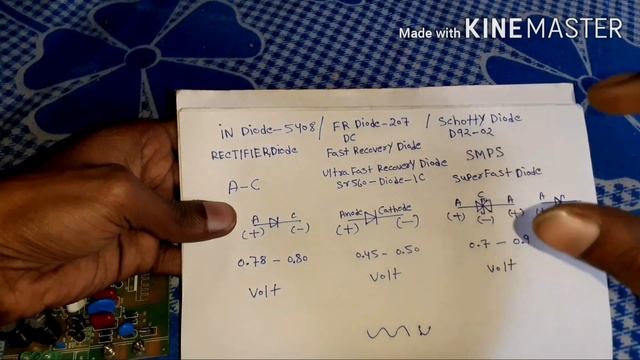 Made with KINEMASTER
IN Diode-5408 / FR Diode-207 / Schotty Diode
DC D92-02
RECTIFIER Diode Fast Recovery Diode SMPS
Ultra Fast Recovery Diode
A-C Sr560-Diode-1C SuperFast Diode
A C Anode Cathode A C A A
(+) (-) (+) (-) (+) (-) (+)
0.78 - 0.80 0.45 - 0.50 0.7 - 0.9
Volt Volt Volt